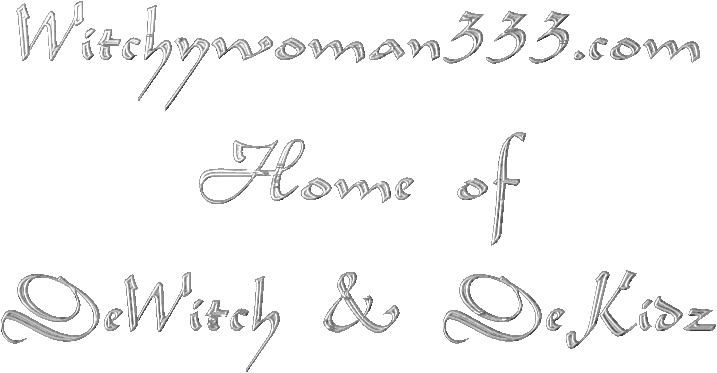 Witchywoman333.com
Home of
DeWitch & DeKidz